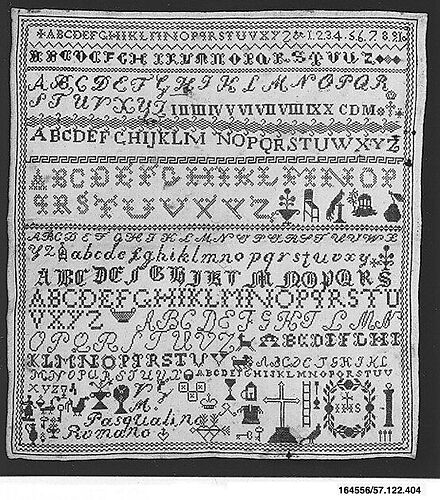 ABCDEFGHIKLMNOPQRSTUVXYZ & 1.2.3.4.5.6.7.8.9.10
ABCDEFGHIKLMNOPQRSTUVZ
ABCDEFGHIKLMNOPQR
STUVXYZ IIIIIIIVVVIVIIVIIIIXX CDM
ABCDEFGHIJKLM NOPQRSTUVWXYZ
ABCDEFGHIKLMNOP
QRSTUVXYZ
ABCDEFGHIKLMNOPQRSTUVWX
YZ abcdefghiklmnopqrstuvxy
ABCDEFGHIKLMNOPQRS
ABCDEFGHIKLMNOPQRSTU
VXYZ ABCDEFGHIKLMN
OPQRSTUVXYZ ABCDEFGHI
KLMNOPQRSTUV ABCDEFGHIKL
MNOPQRSTUVXYZ ABCDEFGHIJKLMNOPQRSTUV
XYZ
V F
M.
IHS
Pasqualina
Romano
164556/57.122.404